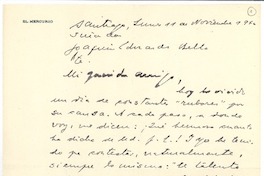 EL MERCURIO
Santiago, Lunes 11 de Noviembre 196
Joaquín Edwards Bello
Pte.
Mi querido amigo,
hoy he vivido
un día de constante "rubores" por
su causa. A cada paso, a donde
voy, me dicen: ¡Qué hermoso
ha dicho de Ud. J. E.! I yo he teni-
do que contestar, naturalmente,
siempre lo mismo: "te talento